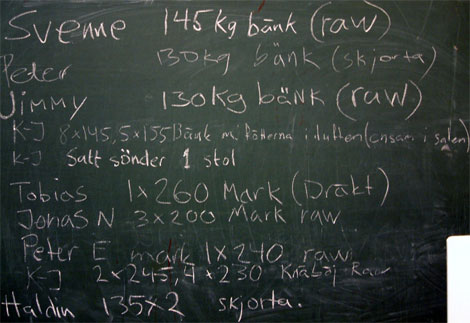 Svenne 145 kg bänk (raw)
Peter 130kg bänk (skjorta)
Jimmy 130kg bänk (raw)
K-J 8x145, 5x155 Bänk m. fötterna i luften (ensam i salen)
K-J Satt sönder 1 stol
Tobias 1x260 Mark (Dräkt)
Jonas N 3x200 Mark raw
Peter E mark 1x240 raw
K-J 2x245, 4x230 Knäböj Raw
Haldin 135x2 skjorta.